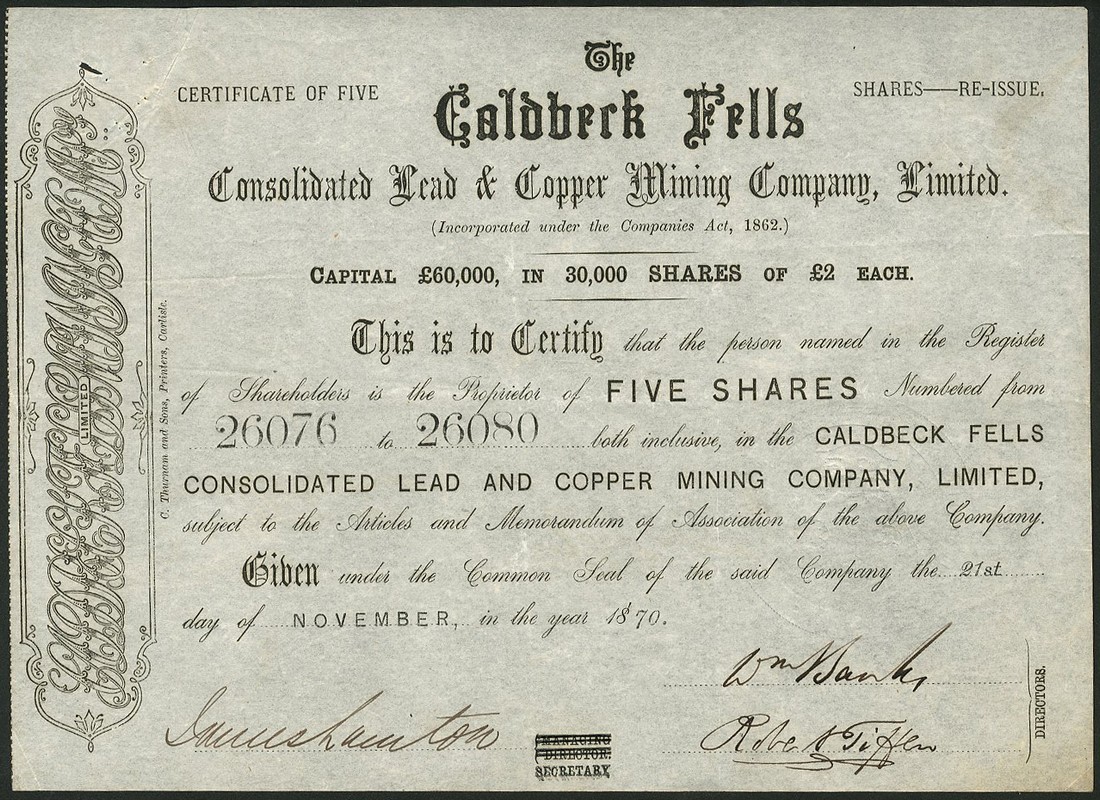 The
CERTIFICATE OF FIVE
SHARES——RE-ISSUE.
Caldbeck Fells
Consolidated Lead & Copper Mining Company, Limited.
(Incorporated under the Companies Act, 1862.)
CAPITAL £60,000, IN 30,000 SHARES OF £2 EACH.
This is to Certify that the person named in the Register
of Shareholders is the Proprietor of FIVE SHARES Numbered from
26076 to 26080 both inclusive, in the CALDBECK FELLS
CONSOLIDATED LEAD AND COPPER MINING COMPANY, LIMITED,
subject to the Articles and Memorandum of Association of the above Company.
Given under the Common Seal of the said Company the 21st
day of NOVEMBER, in the year 1870.
Wm Banks
Robert Tiffen
DIRECTORS.
James
MANAGING
DIRECTOR.
SECRETARY
C. Thurnam and Sons, Printers, Carlisle.
LIMITED